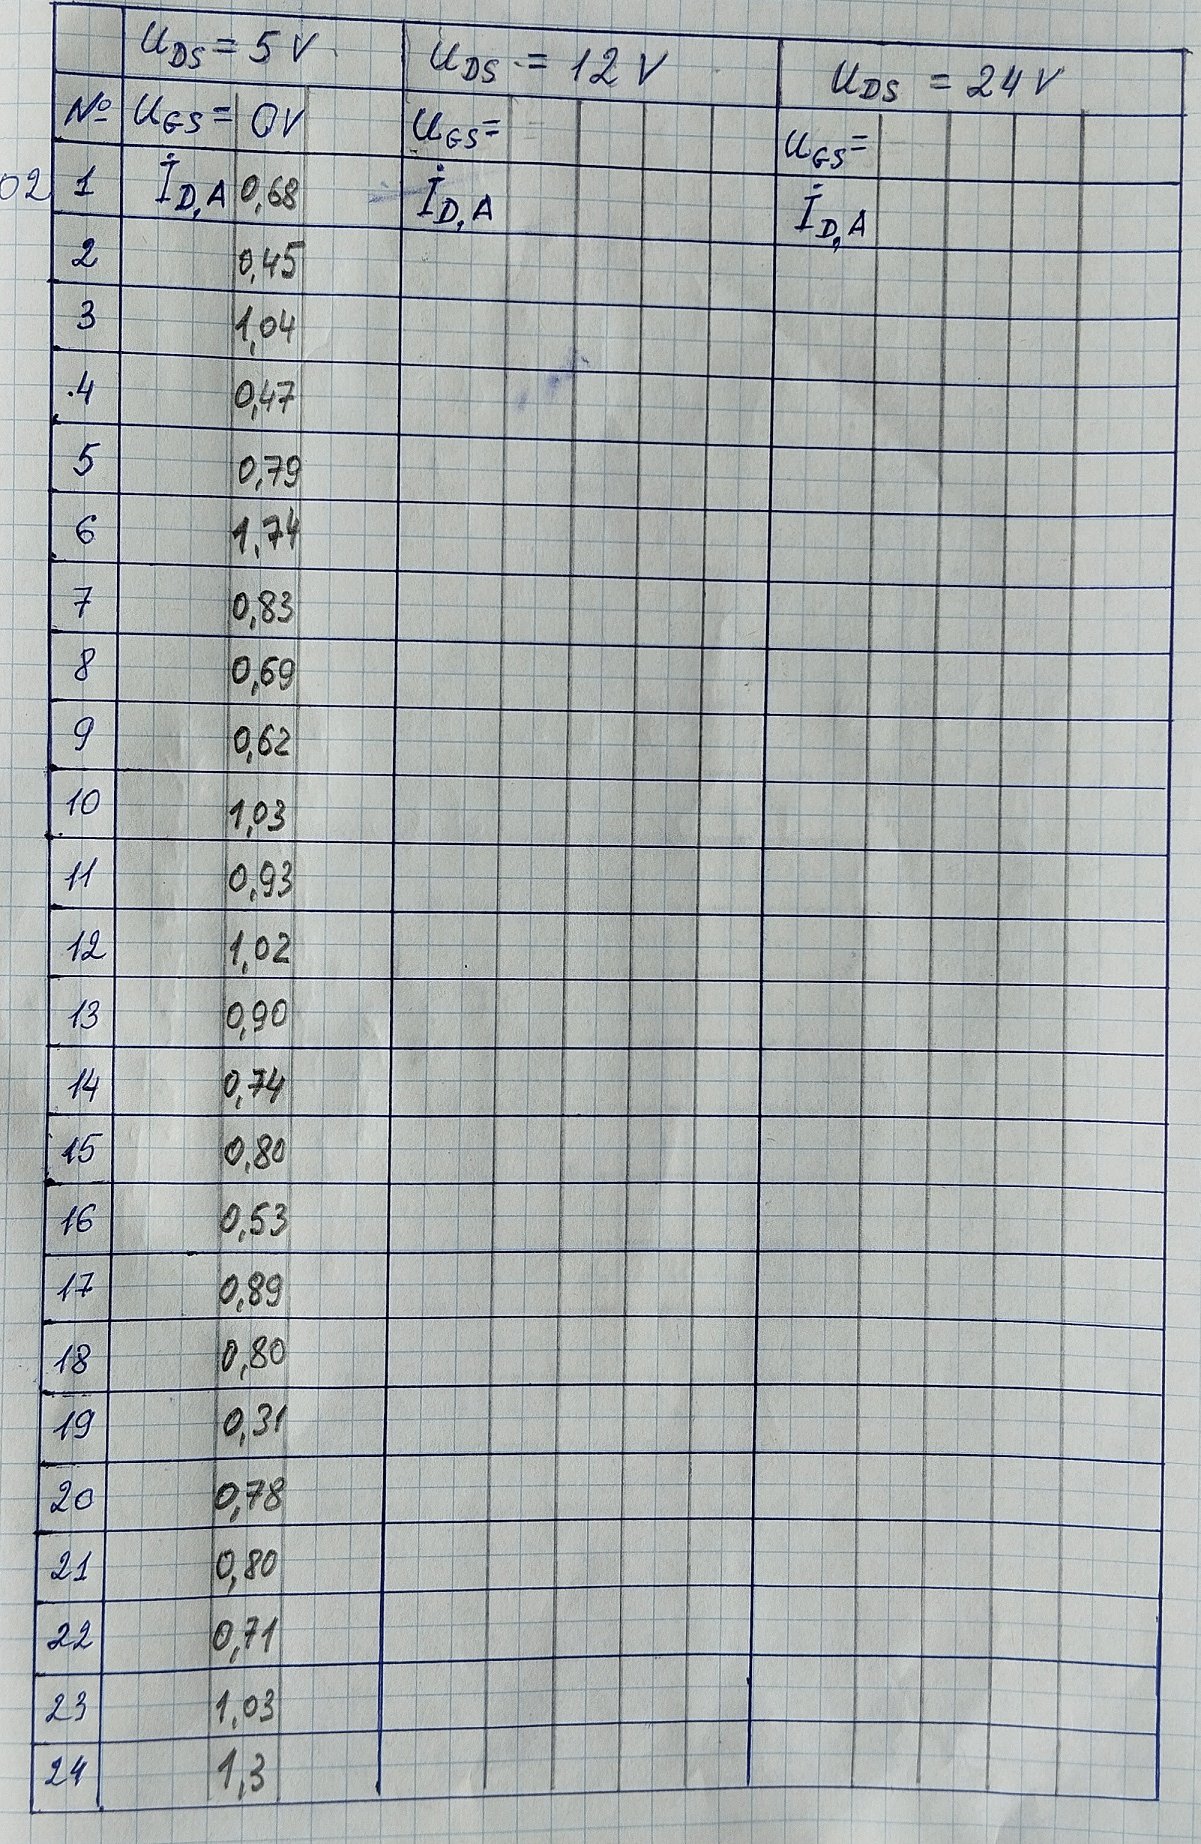 U DS = 5 V U DS = 12 V U DS = 24 V
№ U GS = 0V U GS = U GS =
02 1 İ D, A 0,68 İ D, A İ D, A
2 0,45
3 1,04
4 0,47
5 0,79
6 1,74
7 0,83
8 0,69
9 0,62
10 1,03
11 0,93
12 1,02
13 0,90
14 0,74
15 0,80
16 0,53
17 0,89
18 0,80
19 0,31
20 0,78
21 0,80
22 0,71
23 1,03
24 1,3